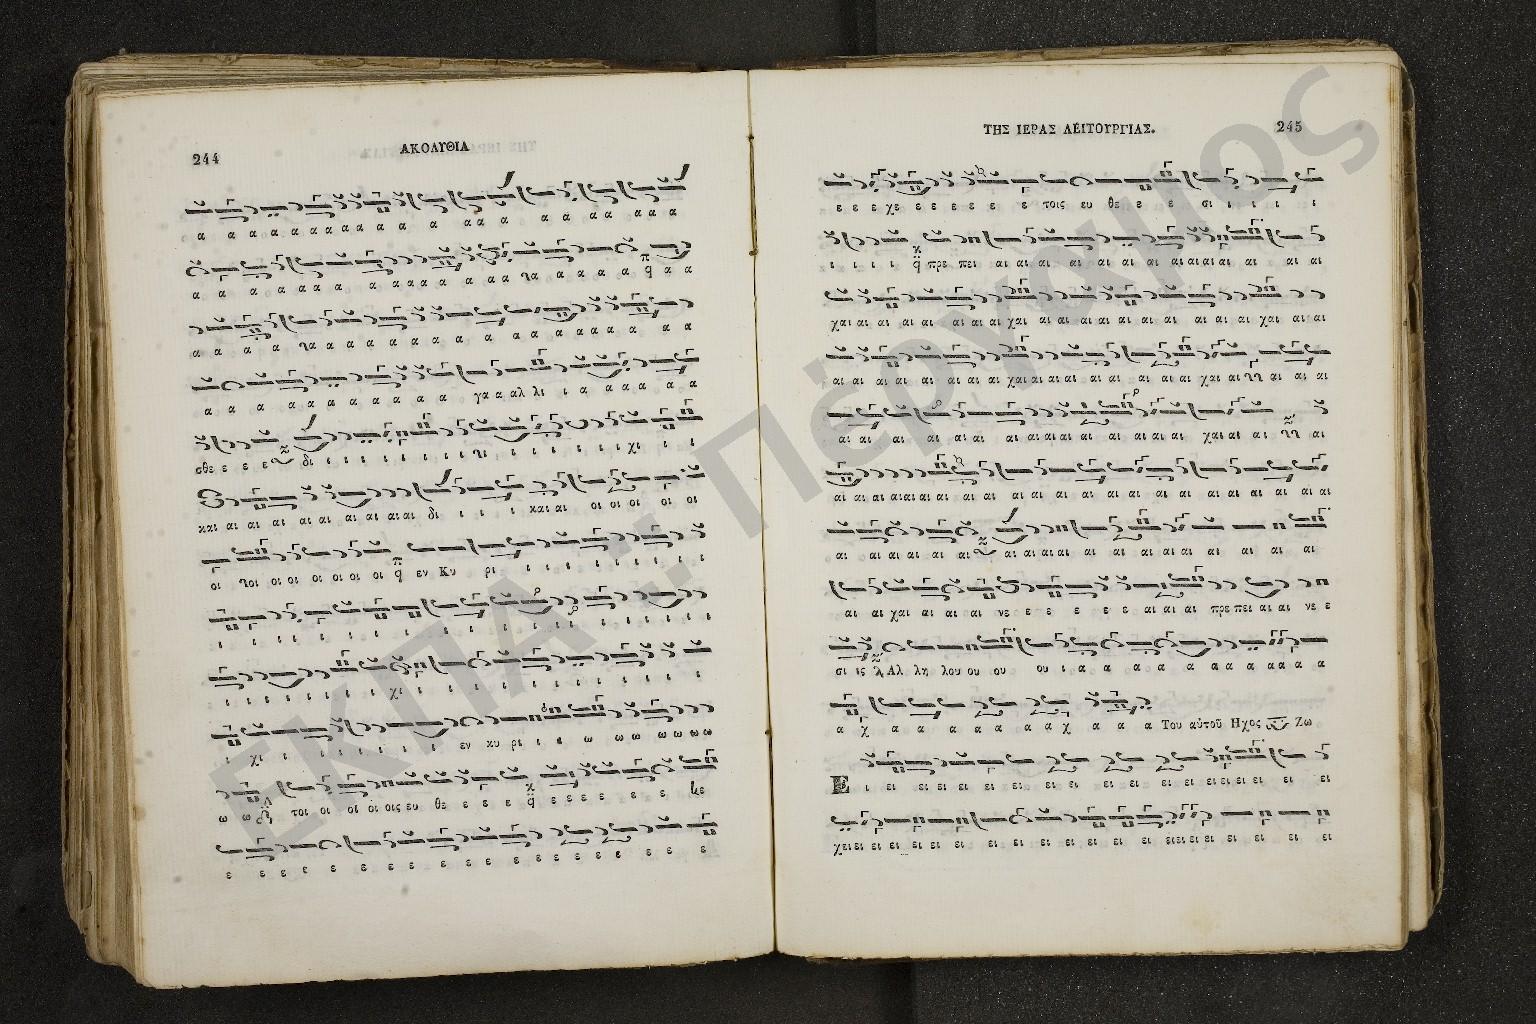 244
ΑΚΟΛΥΘΙΑ
α α α α α α α α α α α α α α α α α α α α α
α α α α α α α α α α α α α γα α α α α α π q α α
α α α α γα α α α α α α α α α α α α α α α α α
α α α α α α α α α α α α γα α αλ λι ι α α α α α α
σθε ε ε ε δι ι ι ι ι ι ι ι ι γι ι ι ι ι ι ι χι ι ι
και αι αι αι αι αι αι αι αι αι δι ι ι ι και αι οι οι οι οι οι
οι γοι οι οι οι οι οι οι π q εν Κυ ρι ι ι ι ι ι ι ι ι ι
ι ι ι ι ι ι ι ι ι ι ι ι ι ι ι ι
ι ι ι ι ι ι χι ι ι ι ι ι ι ι ι ι ι ι
ι χι ι ι ι ι ι ι ι εν κυ ρι ι ι ω ω ω ω ω ω ω
ω ω τοι οι οι οι οις ευ θε ε ε ε q ε ε ε ε ε ε κε
ε ε ε ε ε ε ε ε ε ε ε ε ε ε ε ε ε ε ε
ΤΗΣ ΙΕΡΑΣ ΛΕΙΤΟΥΡΓΙΑΣ.
245
ε ε ε χε ε ε ε ε ε ε τοις ευ θε ε ε σι ι ι ι ι
ι ι ι ι q πρε πει αι αι αι αι αι αι αι αι αι αι αι αι αι αι
χαι αι αι αι αι αι αι αι χαι αι αι αι αι αι αι αι αι αι αι χαι αι αι
αι αι αι αι αι αι αι αι χαι αι αι αι αι αι αι αι αι αι χαι αι αι γγ αι αι αι
αι αι αι αι αι αι αι αι αι αι αι αι αι αι αι χαι αι αι αι γγ αι
αι αι αι αι αι αι αι αι αι αι αι αι αι αι αι αι αι αι αι αι αι αι
αι αι αι αι αι αι αι αι αι αι αι αι αι αι αι αι αι αι αι
αι αι χαι αι αι αι νε ε ε ε ε ε ε αι αι αι πρε πει αι αι νε ε
σι ις Αλ λη λου ου ου ου ι α α α α α α α α α α α
α χ α α α α α α α χ α α α Του αὐτοῦ Ηχος Ζω
Ε ι ει ει ει ει ει ει ει ει ει ει ει ει ει ει ει ει ει ει ει
χει ει ει ει ει ει ει ει ει ει ει ει ει ει ει ει ει ει ει ει ει
ΕΚΠΑ :. Πέργαμος